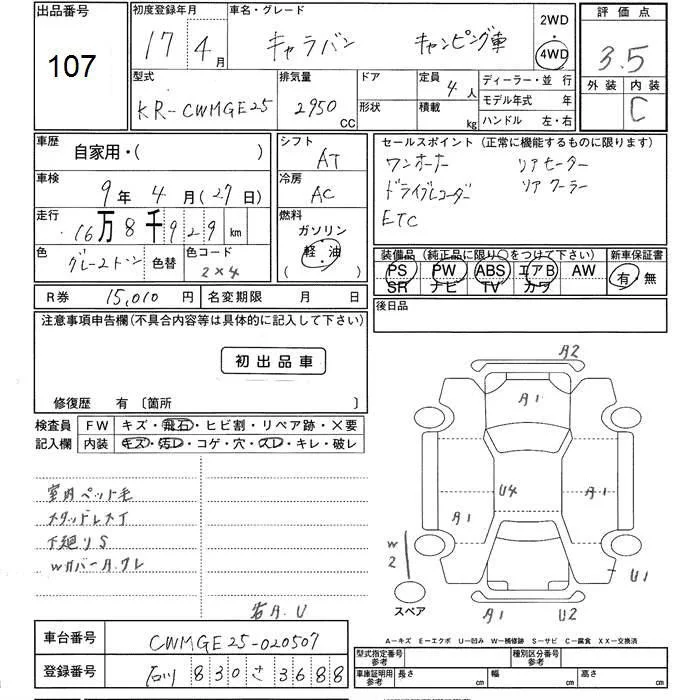 出品番号
107
初度登録年月
17年 4月
車名・グレード
キャラバン キャンピング車
2WD
4WD
評価点
3.5
外装 内装
C
型式
KR-CWMGE25
排気量
2950
CC
ドア
形状
定員
4人
積載
kg
ディーラー・並 行
モデル年式 年
ハンドル 左・右
車歴
自家用・( )
車検
9年 4月(27日)
走行
16万8千929km
色
グレー2トーン
色替
色コード
2×4
シフト
AT
冷房
AC
燃料
ガソリン
軽・油
( )
セールスポイント (正常に機能するものに限ります)
ワンオーナー リアヒーター
ドライブレコーダー リアクーラー
ETC
装備品 (純正品に限り○をつけて下さい)
PS PW ABS エアB AW
SR ナビ TV カワ
新車保証書
有・無
R券 15,010円
名変期限 月 日
後日品
注意事項申告欄(不具合内容等は具体的に記入して下さい)
初出品車
修復歴 有 〔箇所 〕
検査員
記入欄
FW キズ・飛石・ヒビ割・リペア跡・×要
内装 キズ・汚レ・コゲ・穴・スレ・キレ・破レ
室内ペット毛
スタッドレスタイ
下廻りS
Wカバー A.クレ
右A.U
A2
A1
U4
A1
A1
W2
U1
スペア
A1 U2
A-キズ E-エクボ U-凹み W-補修跡 S-サビ C-腐食 XX-交換済
車台番号
CWMGE25-020507
登録番号
石川 830 さ 3688
型式指定番号
参考
種別区分番号
参考
車庫証明用
参考
長さ cm
幅 cm
高さ cm